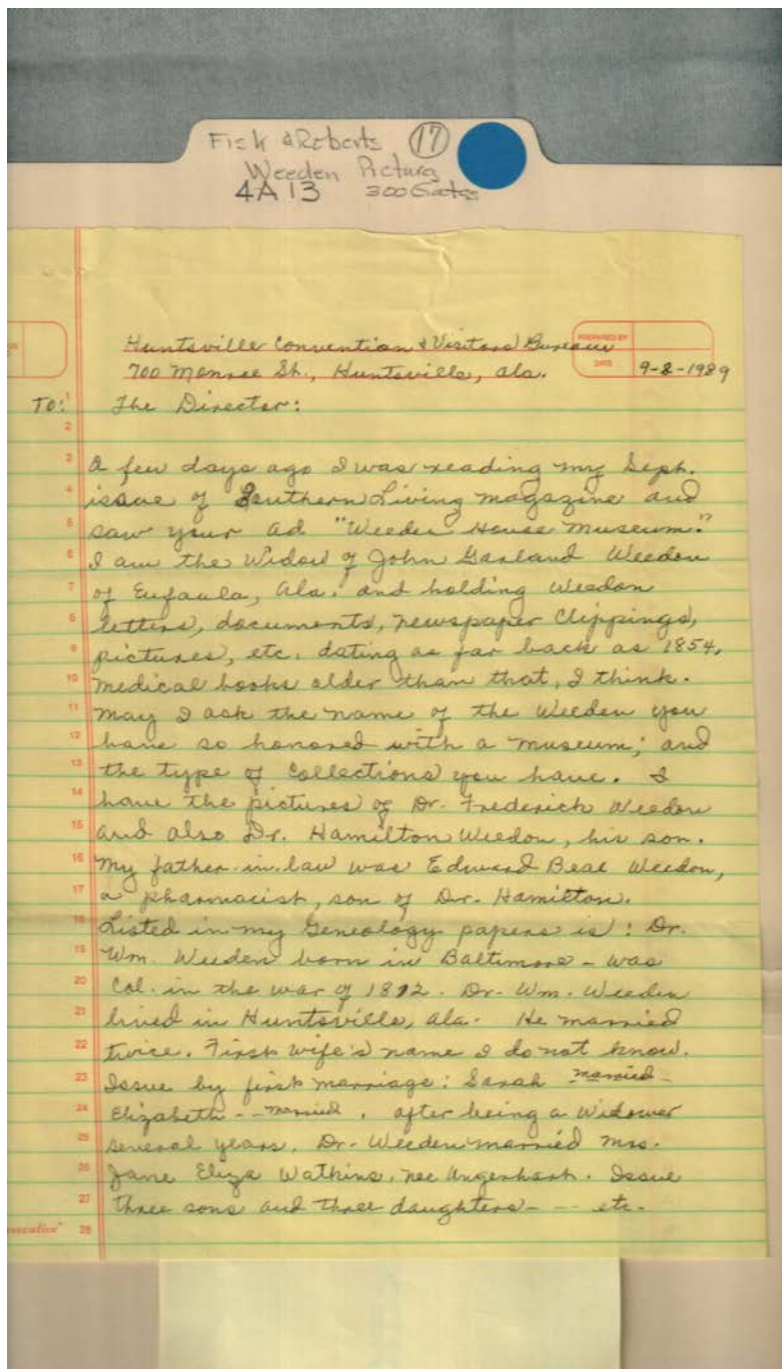 Fisk & Roberts 17
Weeden Picture
4A 13 300 Gates
Huntsville Convention & Visitors Bureau
700 Monroe St., Huntsville, Ala.
PREPARED BY
DATE 9-8-1989
TO: The Director:
A few days ago I was reading my Sept.
issue of Southern Living magazine and
saw your ad "Weeden House Museum."
I am the Widow of John Garland Weedon
of Eufaula, Ala. and holding Weedon
letters, documents, newspaper clippings,
pictures, etc. dating as far back as 1854,
medical books older than that, I think.
May I ask the name of the Weeden you
have so honored with a museum; and
the type of collections you have. I
have the pictures of Dr. Frederick Weedon
and also Dr. Hamilton Weedon, his son.
My father-in-law was Edward Beal Weedon,
a pharmacist, son of Dr. Hamilton.
Listed in my Geneology papers is: Dr.
Wm. Weeden born in Baltimore - was
Col. in the war of 1812. Dr. Wm. Weeden
lived in Huntsville, Ala. He married
twice. First wife's name I do not know.
Issue by first marriage: Sarah married -
Elizabeth -- married. After being a Widower
several years, Dr. Weeden married Mrs.
Jane Eliza Watkins, nee Urgenhart. Issue
three sons and three daughters - -- etc.